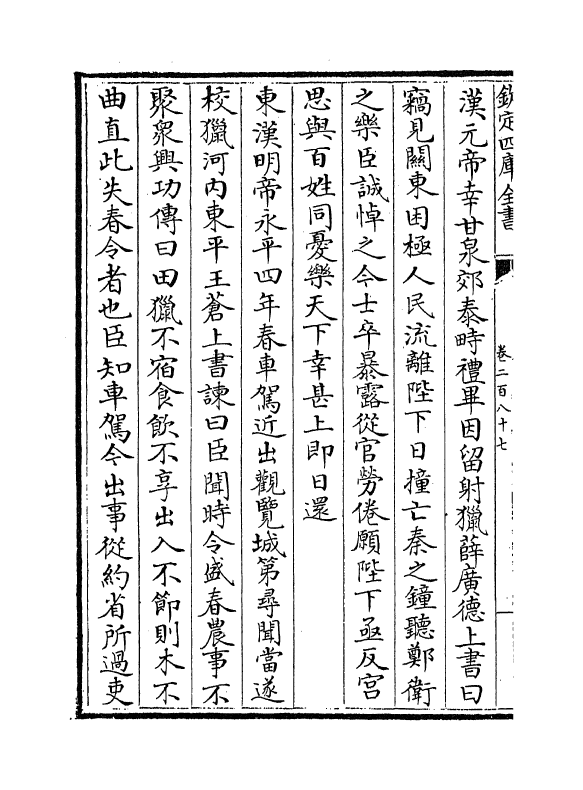 欽定四庫全書
卷二百八十七
漢元帝幸甘泉郊泰畤禮畢因留射獵薛廣德上書曰
竊見關東困極人民流離陛下日撞亡秦之鐘聽鄭衛
之樂臣誠悼之今士卒暴露從官勞倦願陛下亟反宮
思與百姓同憂樂天下幸甚上即日還
東漢明帝永平四年春車駕近出觀覽城第尋聞當遂
校獵河內東平王蒼上書諫曰臣聞時令盛春農事不
聚衆興功傳曰田獵不宿食飲不享出入不節則木不
曲直此失春令者也臣知車駕今出事從約省所過吏